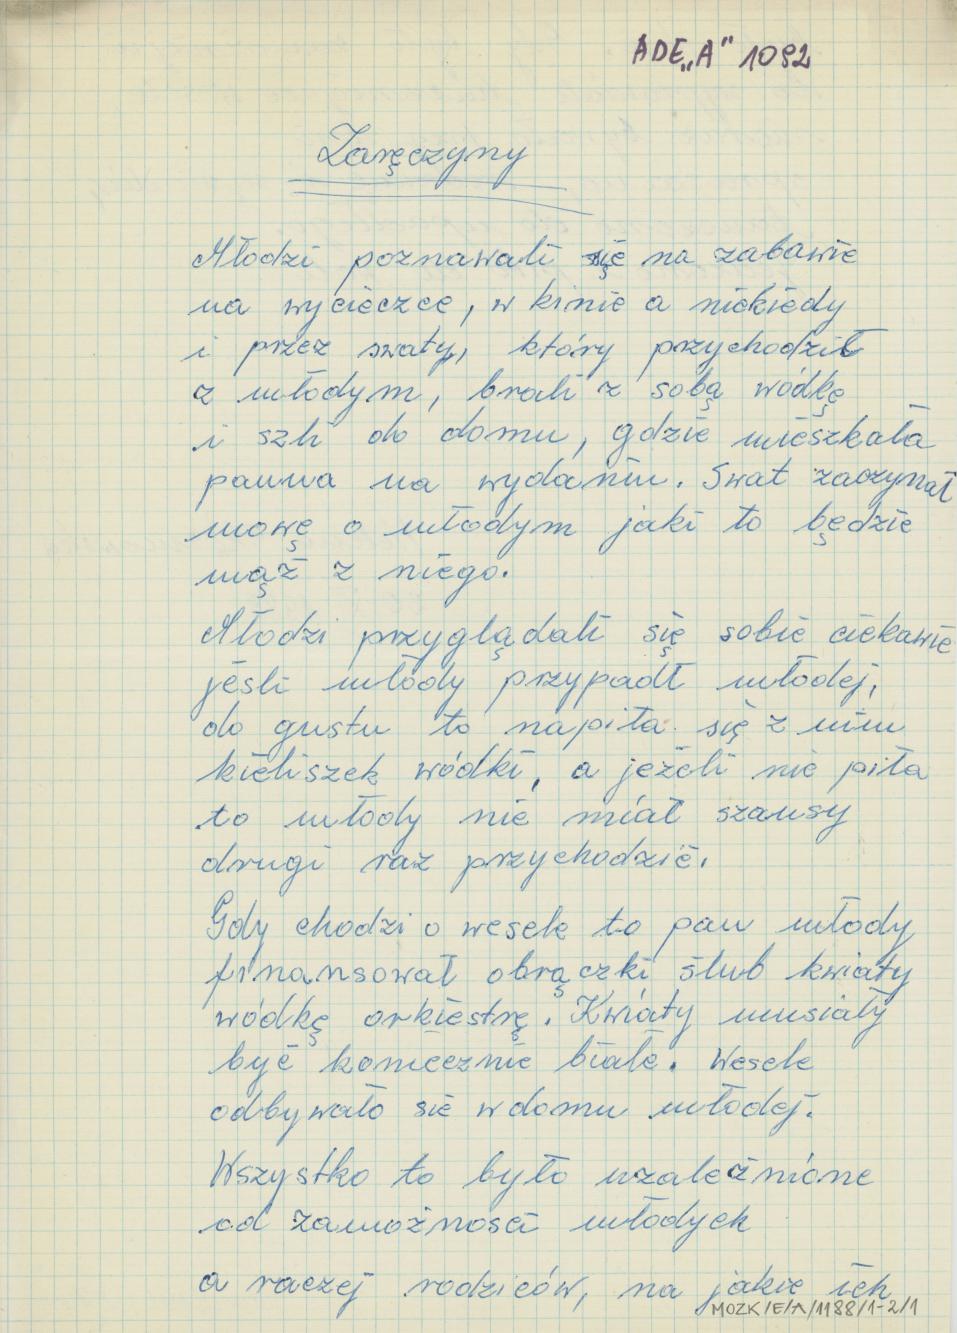 ADE „A" 1092
Zaręczyny
Młodzi poznawali się na zabawie
na wycieczce, w kinie a niekiedy
i przez swaty, który przychodził
z młodym, brali z sobą wódkę
i szli do domu, gdzie mieszkała
panna na wydaniu. Swat zaczynał
mowę o młodym jaki to będzie
mąż z niego.
Młodzi przyglądali się sobie ciekawie
jeśli młody przypadł młodej,
do gustu to napiła się z nim
kieliszek wódki, a jeżeli nie piła
to młody nie miał szansy
drugi raz przychodzić.
Gdy chodzi o wesele to pan młody
finansował obrączki ślub kwiaty
wódkę orkiestrę. Kwiaty musiały
być koniecznie białe. Wesele
odbywało sie w domu młodej.
Wszystko to było uzależnione
od zamożności młodych
a raczej rodziców, na jakie ich
MOZK/E/A/1188/1-2/1